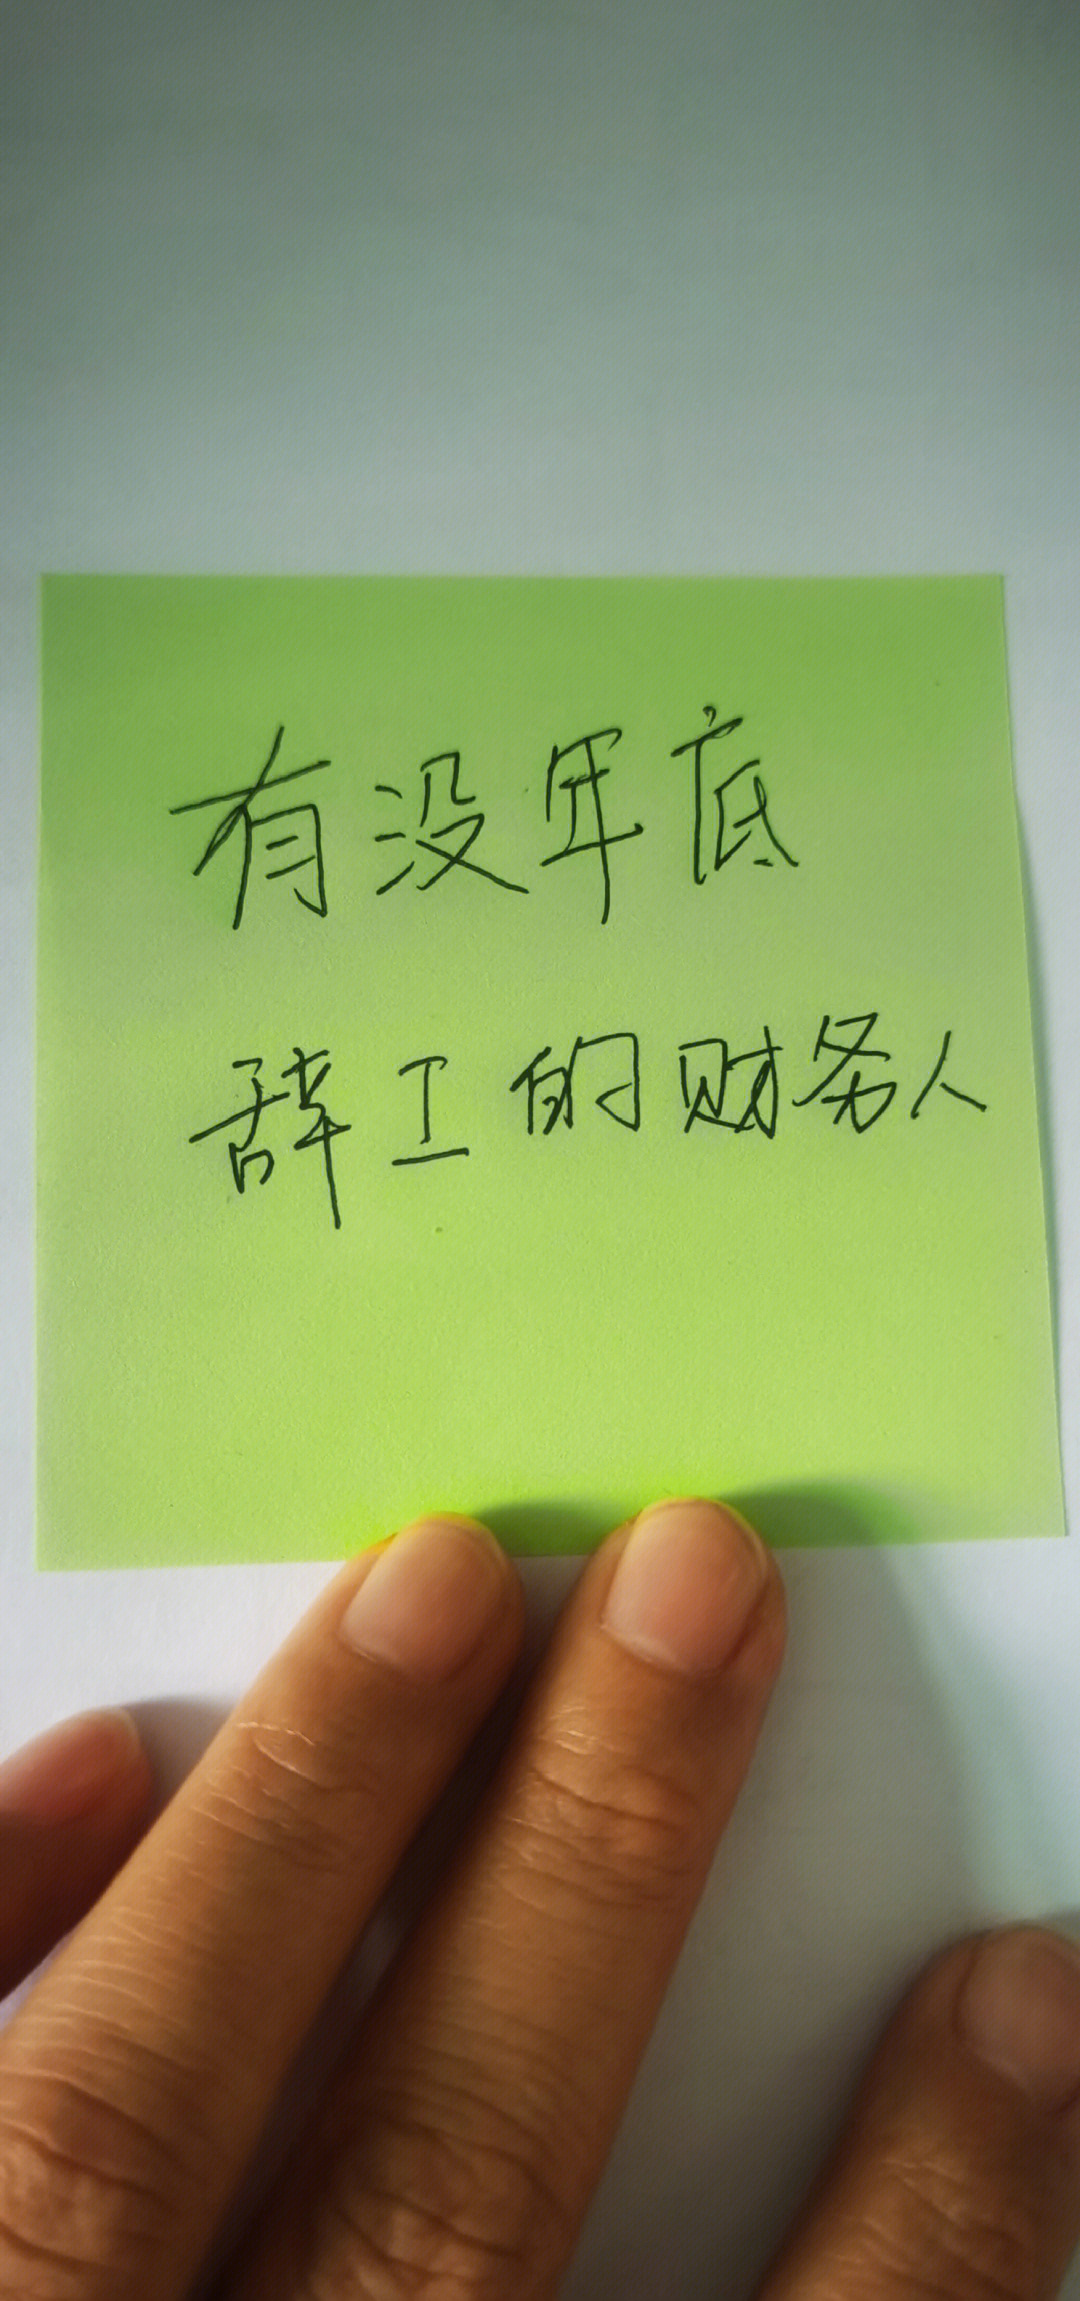 有没年底
辞工的财务人